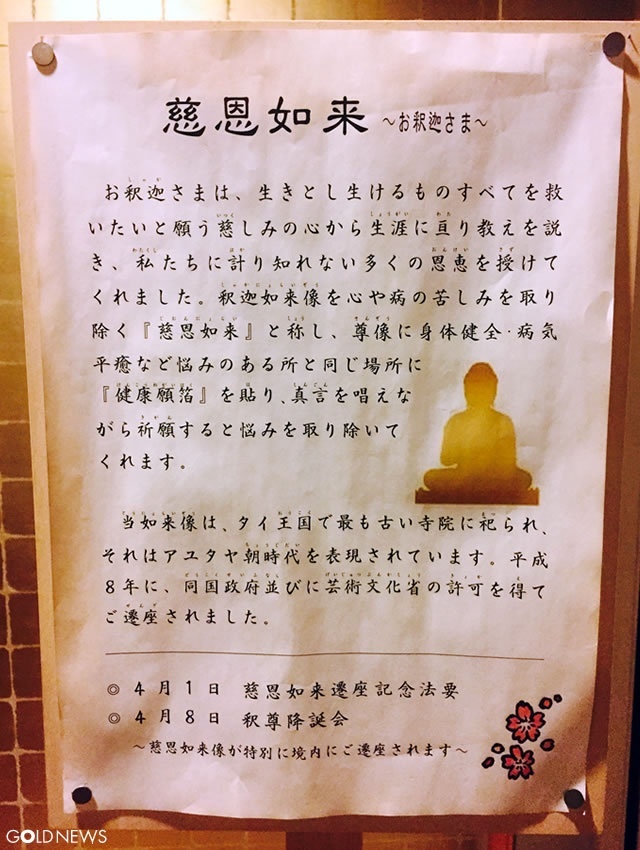 慈恩如来 ～お釈迦さま～
お釈迦さまは、生きとし生けるものすべてを救
いたいと願う慈しみの心から生涯に亘り教えを説
き、私たちに計り知れない多くの恩恵を授けて
くれました。釈迦如来像を心や病の苦しみを取り
除く『慈恩如来』と称し、尊像に身体健全·病気
平癒など悩みのある所と同じ場所に
『健康願箔』を貼り、真言を唱えな
がら祈願すると悩みを取り除いて
くれます。
当如来像は、タイ王国で最も古い寺院に祀られ、
それはアユタヤ朝時代を表現されています。平成
8年に、同国政府並びに芸術文化省の許可を得て
ご遷座されました。
◎ 4月1日 慈恩如来遷座記念法要
◎ 4月8日 釈尊降誕会
～慈恩如来像が特別に境内にご遷座されます～
GOLDNEWS